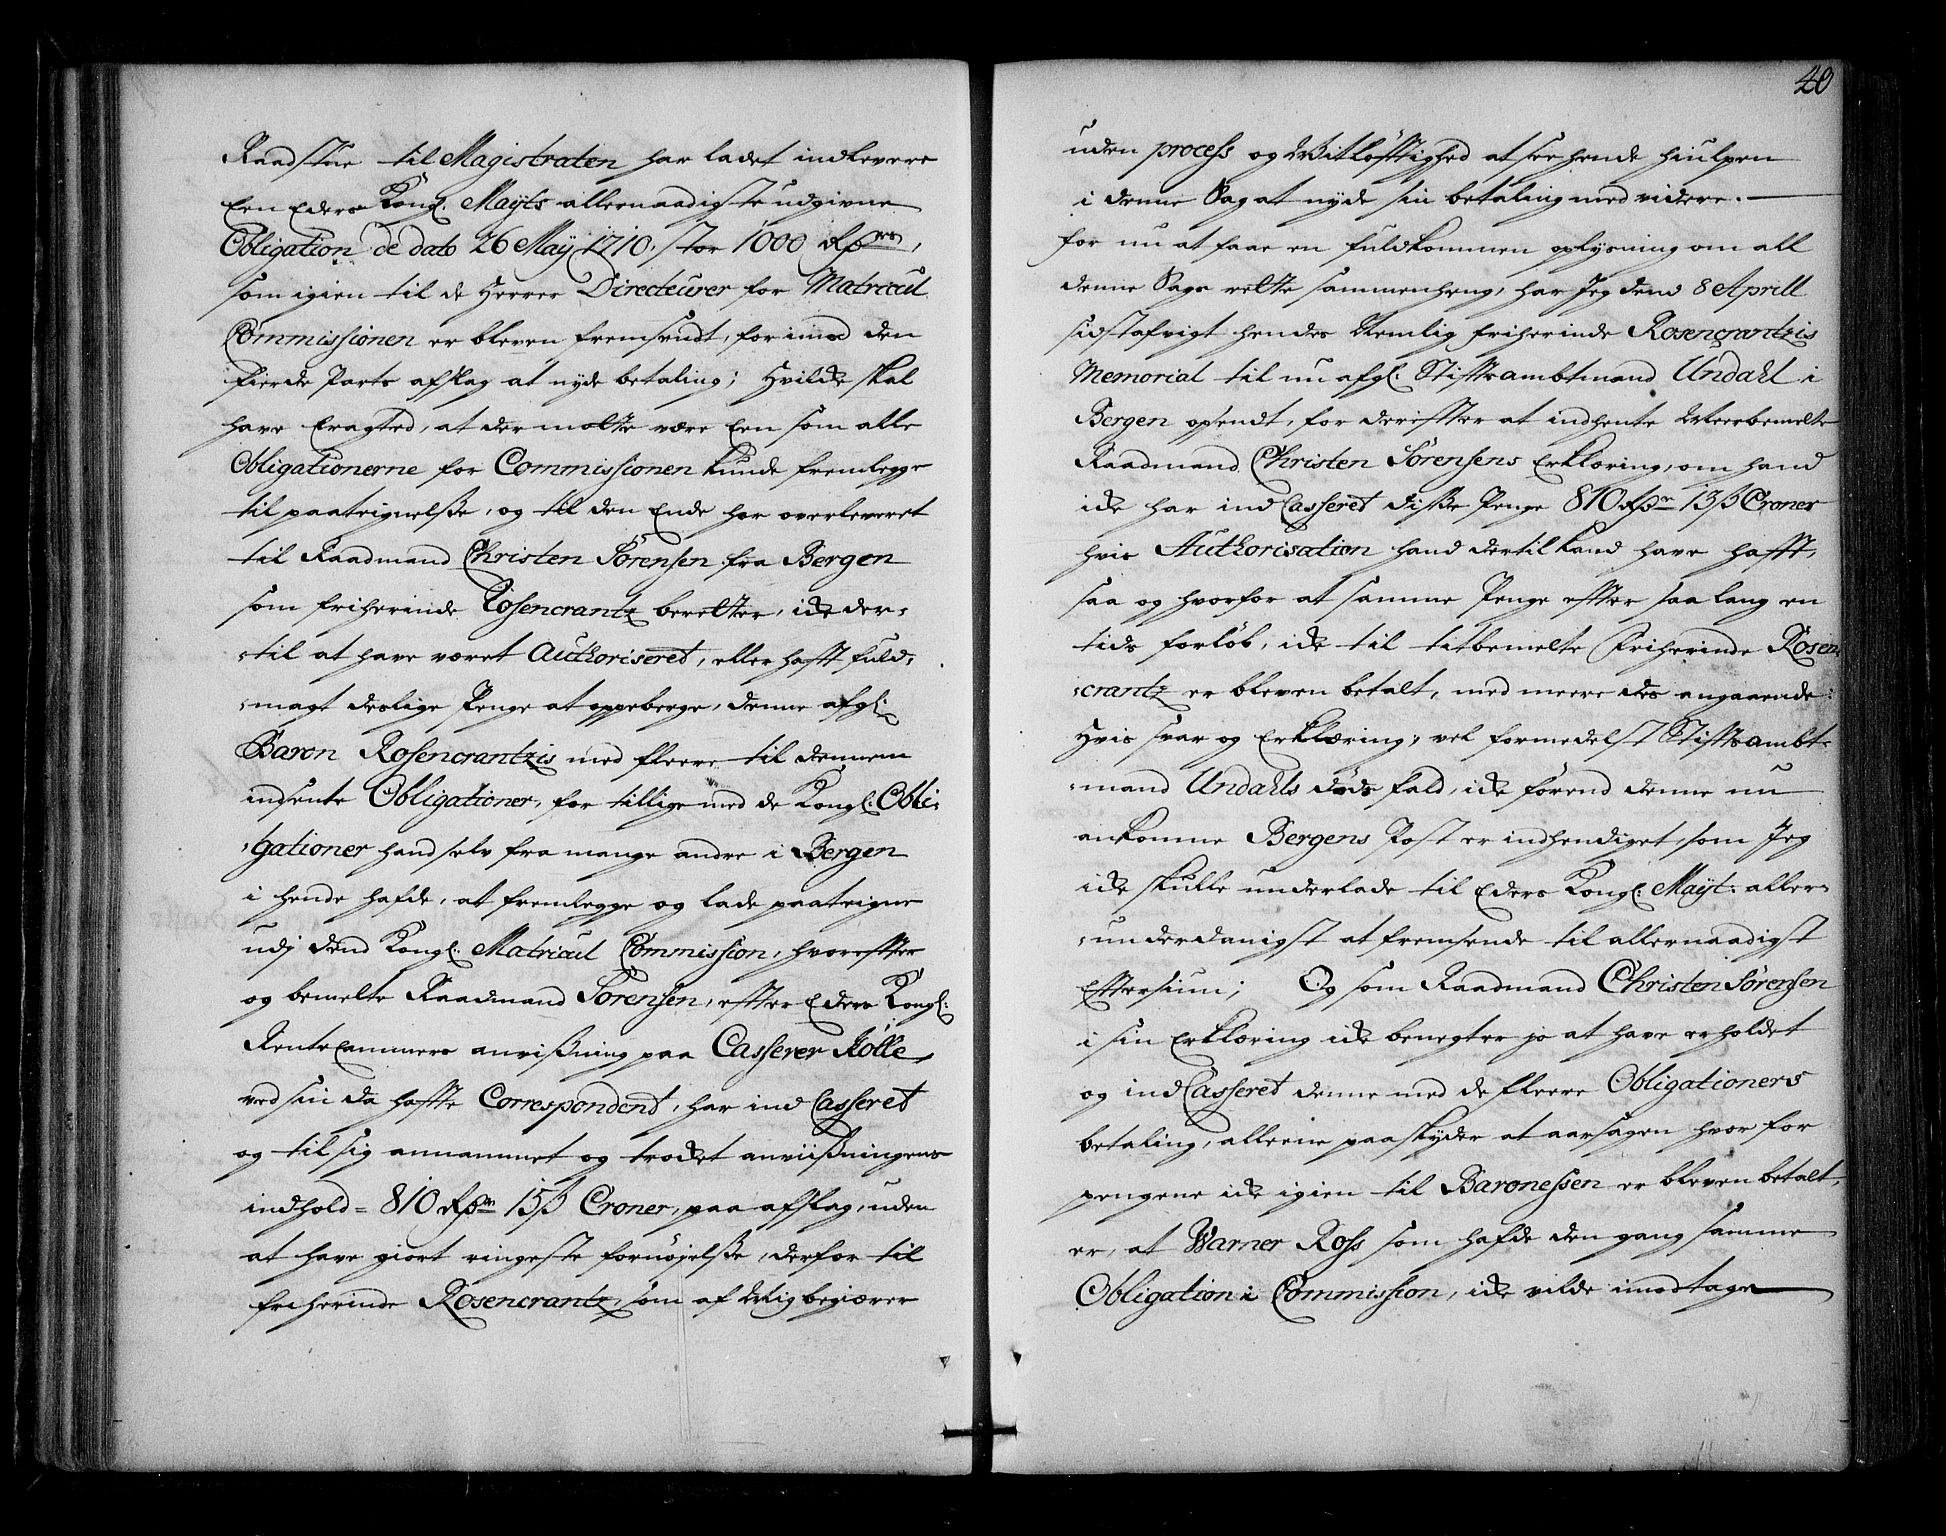 Raadstue til Magistraten har ladet indlevere
Een Eders Kongl. Mayts allernaadigste udgivne
Obligation de dato 26 May 1710. stor 1000 Rdr,
som igien til de Herrer Directeurer for Matricul
Commissionen er bleven fremsendt, for imod den
fierde Parts afslag at nyde betaling; Hvilcke skal
have Eragted, at der motte være Een som alle
Obligationerne for Commissionen kunde fremlegge
til paateignelsse, og til den Ende har overleveret
til Raadmand Christen Sørensen fra Bergen
som friherinde Rosencrantz beretter, icke der-
-til at have været Authoriseret, eller hafft fuld-
-magt deslige Penge at oppeberge, denne afgl:
Baron Rosencrantzis med fleere til dennem
indsente Obligationer, for tillige med de Kongl: Obli-
-gationer hand selv fra mange andre i Bergen
i hende hafde, at fremlegge og lade paateigne
udj dend Kongl: Matricul Commission, hvoreffter
og bemelte Raadmand Sørensen, effter Eders Kongl:
Rente Cammers anvißning paa Casserer Kølle,
ved sin da haffte Correspondent, har ind Casseret
og til sig annammet og trocket anviißningens
indhold = 810 Rdr 15 ß Croner, paa afslag, uden
at have giort ringeste fornøjelsse, derfor til
friherinde Rosencrantz, som af Mig begiærer
20
uden process og Vitløfftighed at see hende hiulpen
i denne Sag at nyde sin betaling med videre.
for nu at faae en fuldkommen oplysning om all
denne Sags rette sammenheng, har Jeg dend 8 Aprill
sidstafvigt hendes Nemlig friherinde Rosencrantzis
Memorial til nu afgl: Stifftsambtmand Undahl i
Bergen opsendt, for dereffter at indhente Meerbemelte
Raadmand Christen Sørensens Erklæring, om hand
icke har ind Casseret disse Penge 810 Rdr 13 ß Croner
hvis Authorisation hand dertil kand have hafft,
saa og hvorfor at samme Penge effter saa lang en
tids forløb, icke til titbemelte Friherinde Rosen-
-crantz er bleven betalt, med meere des angaaende:
Hvis svar og Erklæring, vel formedelst Stifftsambt-
-mand Undahls døds fald, icke førend denne nu
ankomne Bergens Post er indhendiget, som Jeg
icke skulle underlade til Eders Kongl: Mayt: aller-
-underdanigst at fremsende til allernaadigst
Efftersiun; Og som Raadmand Christen Sørensen
i sin Erklæring icke benegter jo at have erholdet
og ind Casseret denne med de fleere Obligationers
betaling, alleene paaskyder at aarsagen hvorfor
pengene icke igien til Baronessen er bleven betalt,
er, at Warner Ross som hafde den gang samme
Obligation i Commission, icke vilde imodtage